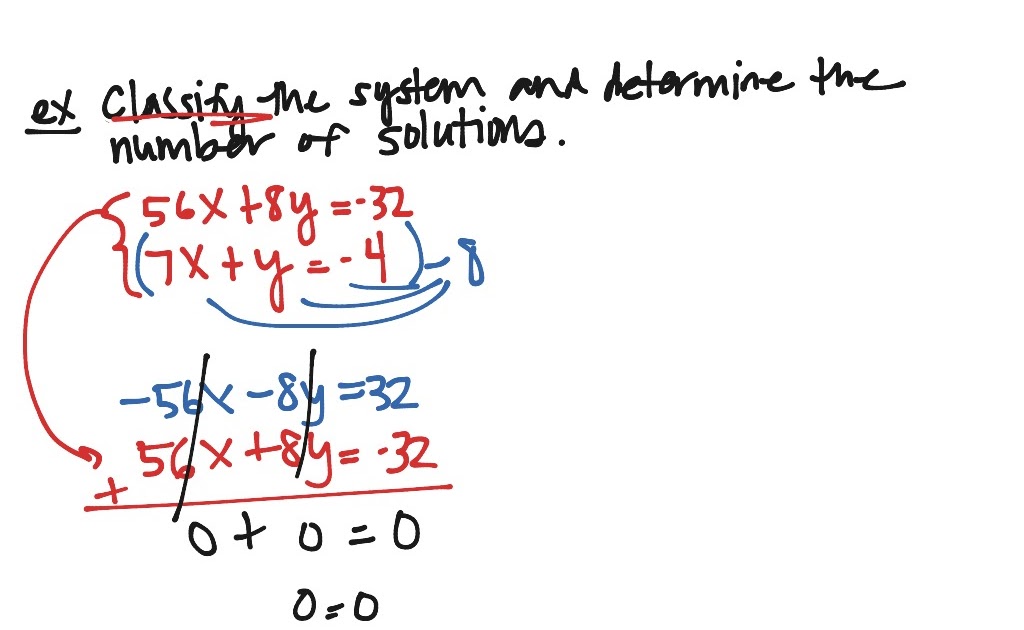 ex Classify the system and determine the
number of solutions.
{56x+8y=-32
{(7x+y=-4)-8
-56x-8y=32
+ 56x+8y=-32
0+0=0
0=0